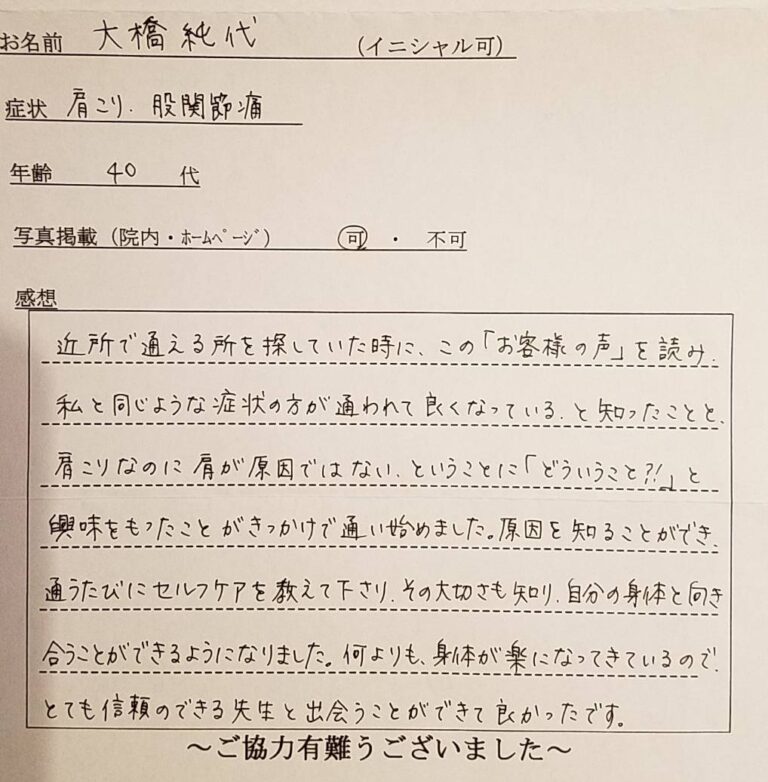 お名前 大橋純代 (イニシャル可)
症状 肩こり、股関節痛
年齢 40 代
写真掲載(院内・ホームページ) 可 ・ 不可
感想
近所で通える所を探していた時に、この「お客様の声」を読み、
私と同じような症状の方が通われて良くなっている、と知ったことと、
肩こりなのに肩が原因ではない、ということに「どういうこと?!」と
興味をもったことがきっかけで通い始めました。原因を知ることができ、
通うたびにセルフケアを教えて下さり、その大切さも知り、自分の身体と向き
合うことができるようになりました。何よりも、身体が楽になってきているので、
とても信頼のできる先生と出会うことができて良かったです。
～ご協力有難うございました～